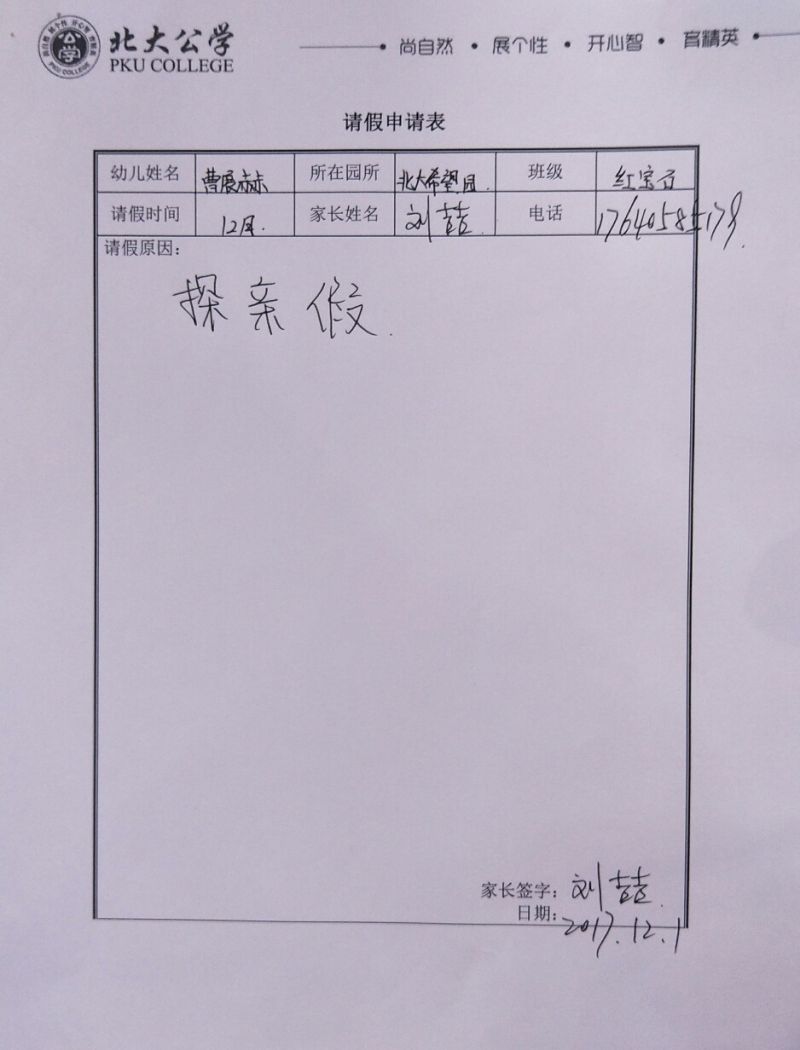 北大公学
PKU COLLEGE
尚自然 • 展个性 • 开心智 • 育精英
请假申请表
幼儿姓名 曹展赫 所在园所 北大希望园. 班级 红宝石
请假时间 12月. 家长姓名 刘喆. 电话 17640585179.
请假原因:
探亲假.
家长签字: 刘喆.
日期: 2017.12.1